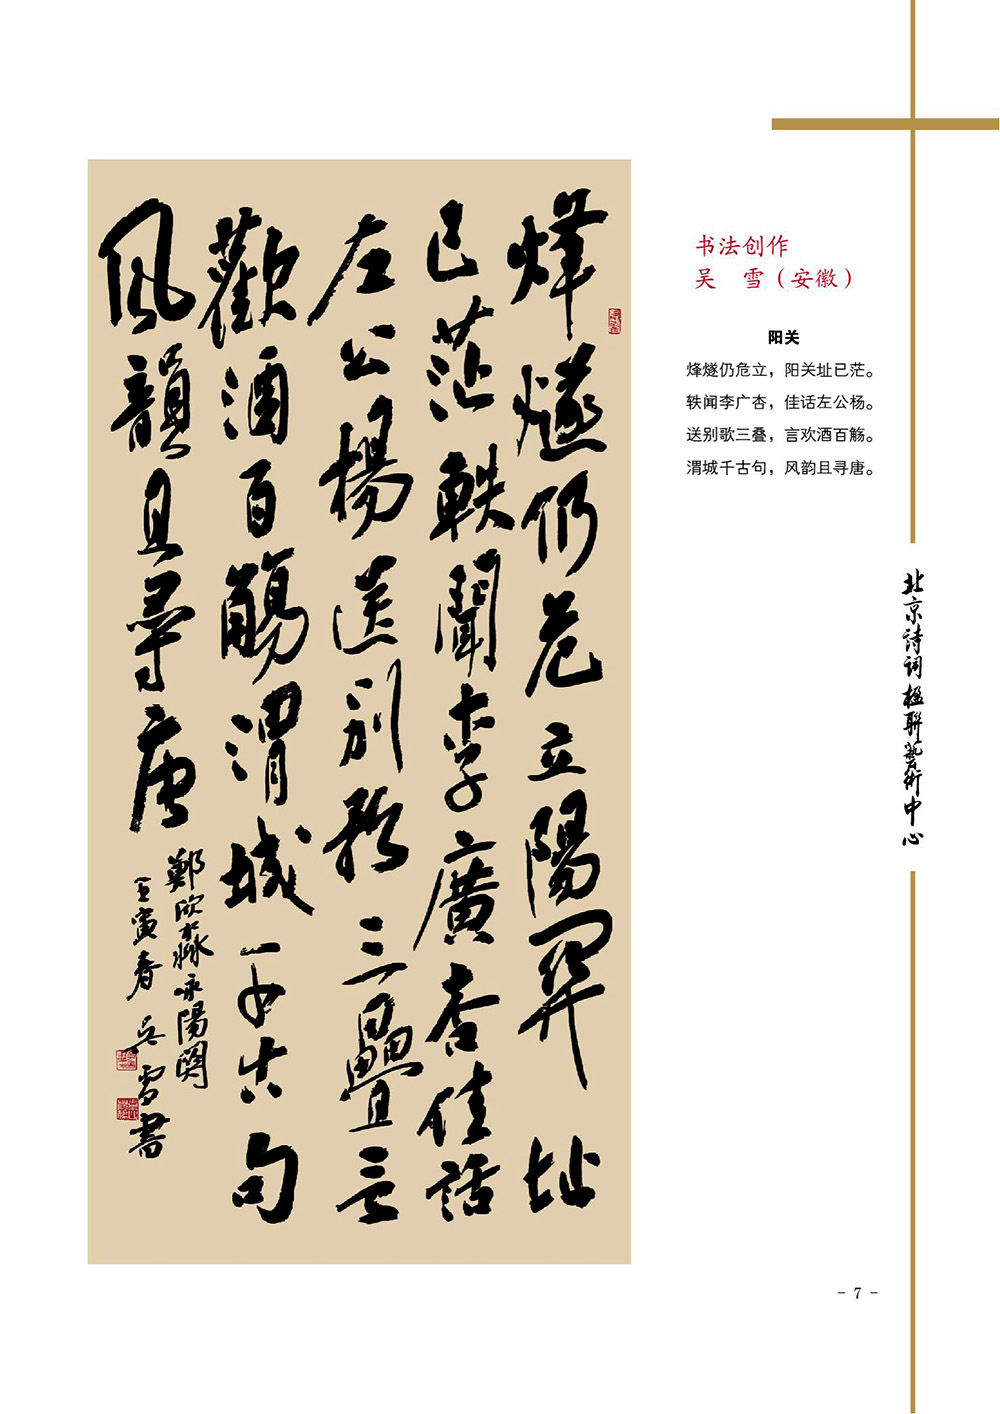 烽燧仍危立陽関址
已茫軼聞李廣杏佳話
左公楊送別歌三疊言
歡酒百觴渭城千古句
風韻且尋唐
鄭欣淼永陽関
壬寅春 吳雪書
书法创作
吴　雪（安徽）
阳关
烽燧仍危立，阳关址已茫。
轶闻李广杏，佳话左公杨。
送别歌三叠，言欢酒百觞。
渭城千古句，风韵且寻唐。
北京詩词楹聯藝術中心
- 7 -